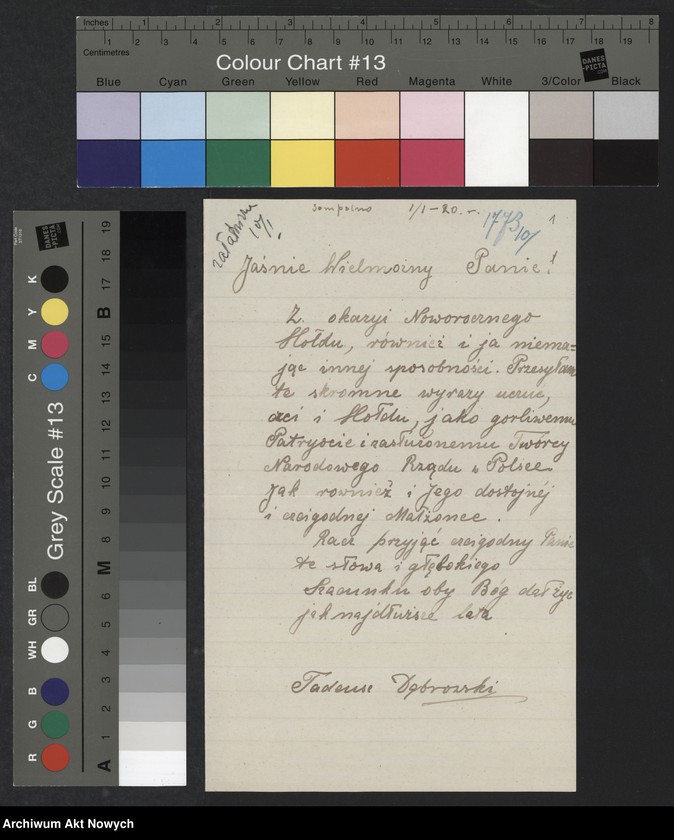 Inches 1 2 3 4 5 6 7 8
Centimetres 1 2 3 4 5 6 7 8 9 10 11 12 13 14 15 16 17 18 19
Colour Chart #13
DANES-PICTA
Blue Cyan Green Yellow Red Magenta White 3/Color Black
Grey Scale #13
R G B WH GR BL C M Y K
A 1 2 3 4 5 6 M 8 9 10 11 12 13 14 15 B 17 18 19
DANES-PICTA
Sompolno 1/I-20.-
10/I
1773
10/I
1
Jaśnie Wielmożny Panie!
Z okazyi Noworocznego
Hołdu, również i ja niema=
jąc innej sposobności. Przesyłam
te skromne wyrazy uczuć,
czci i Hołdu, jako gorliwemu
Patryocie i zasłużonemu Twórcy
Narodowego Rządu w Polsce
Jak rownież i Jego dostojnéj
i czcigodnej Małżonce.
Racz przyjąć czcigodny Panie
te słowa i głębokiego
Szacunku oby Bóg dał żyć
jak najdłuższe lata
Tadeusz Dębrowski
Archiwum Akt Nowych